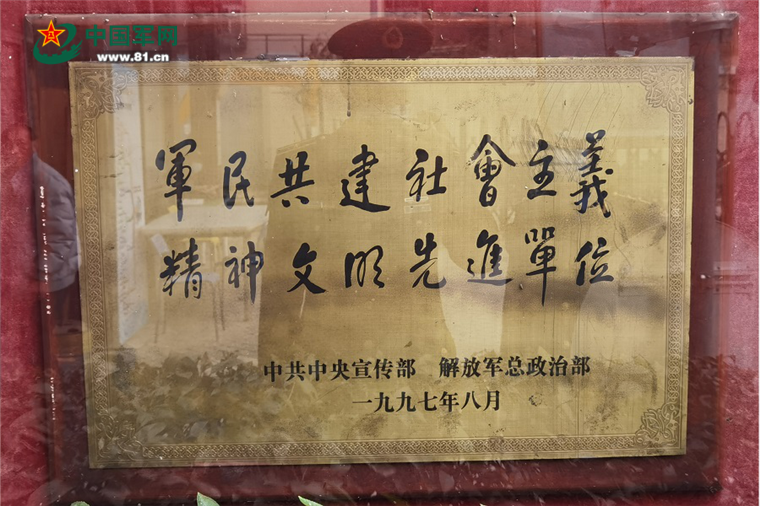 中国军网
www.81.cn
軍民共建社會主義
精神文明先進單位
中共中央宣传部 解放军总政治部
一九九七年八月